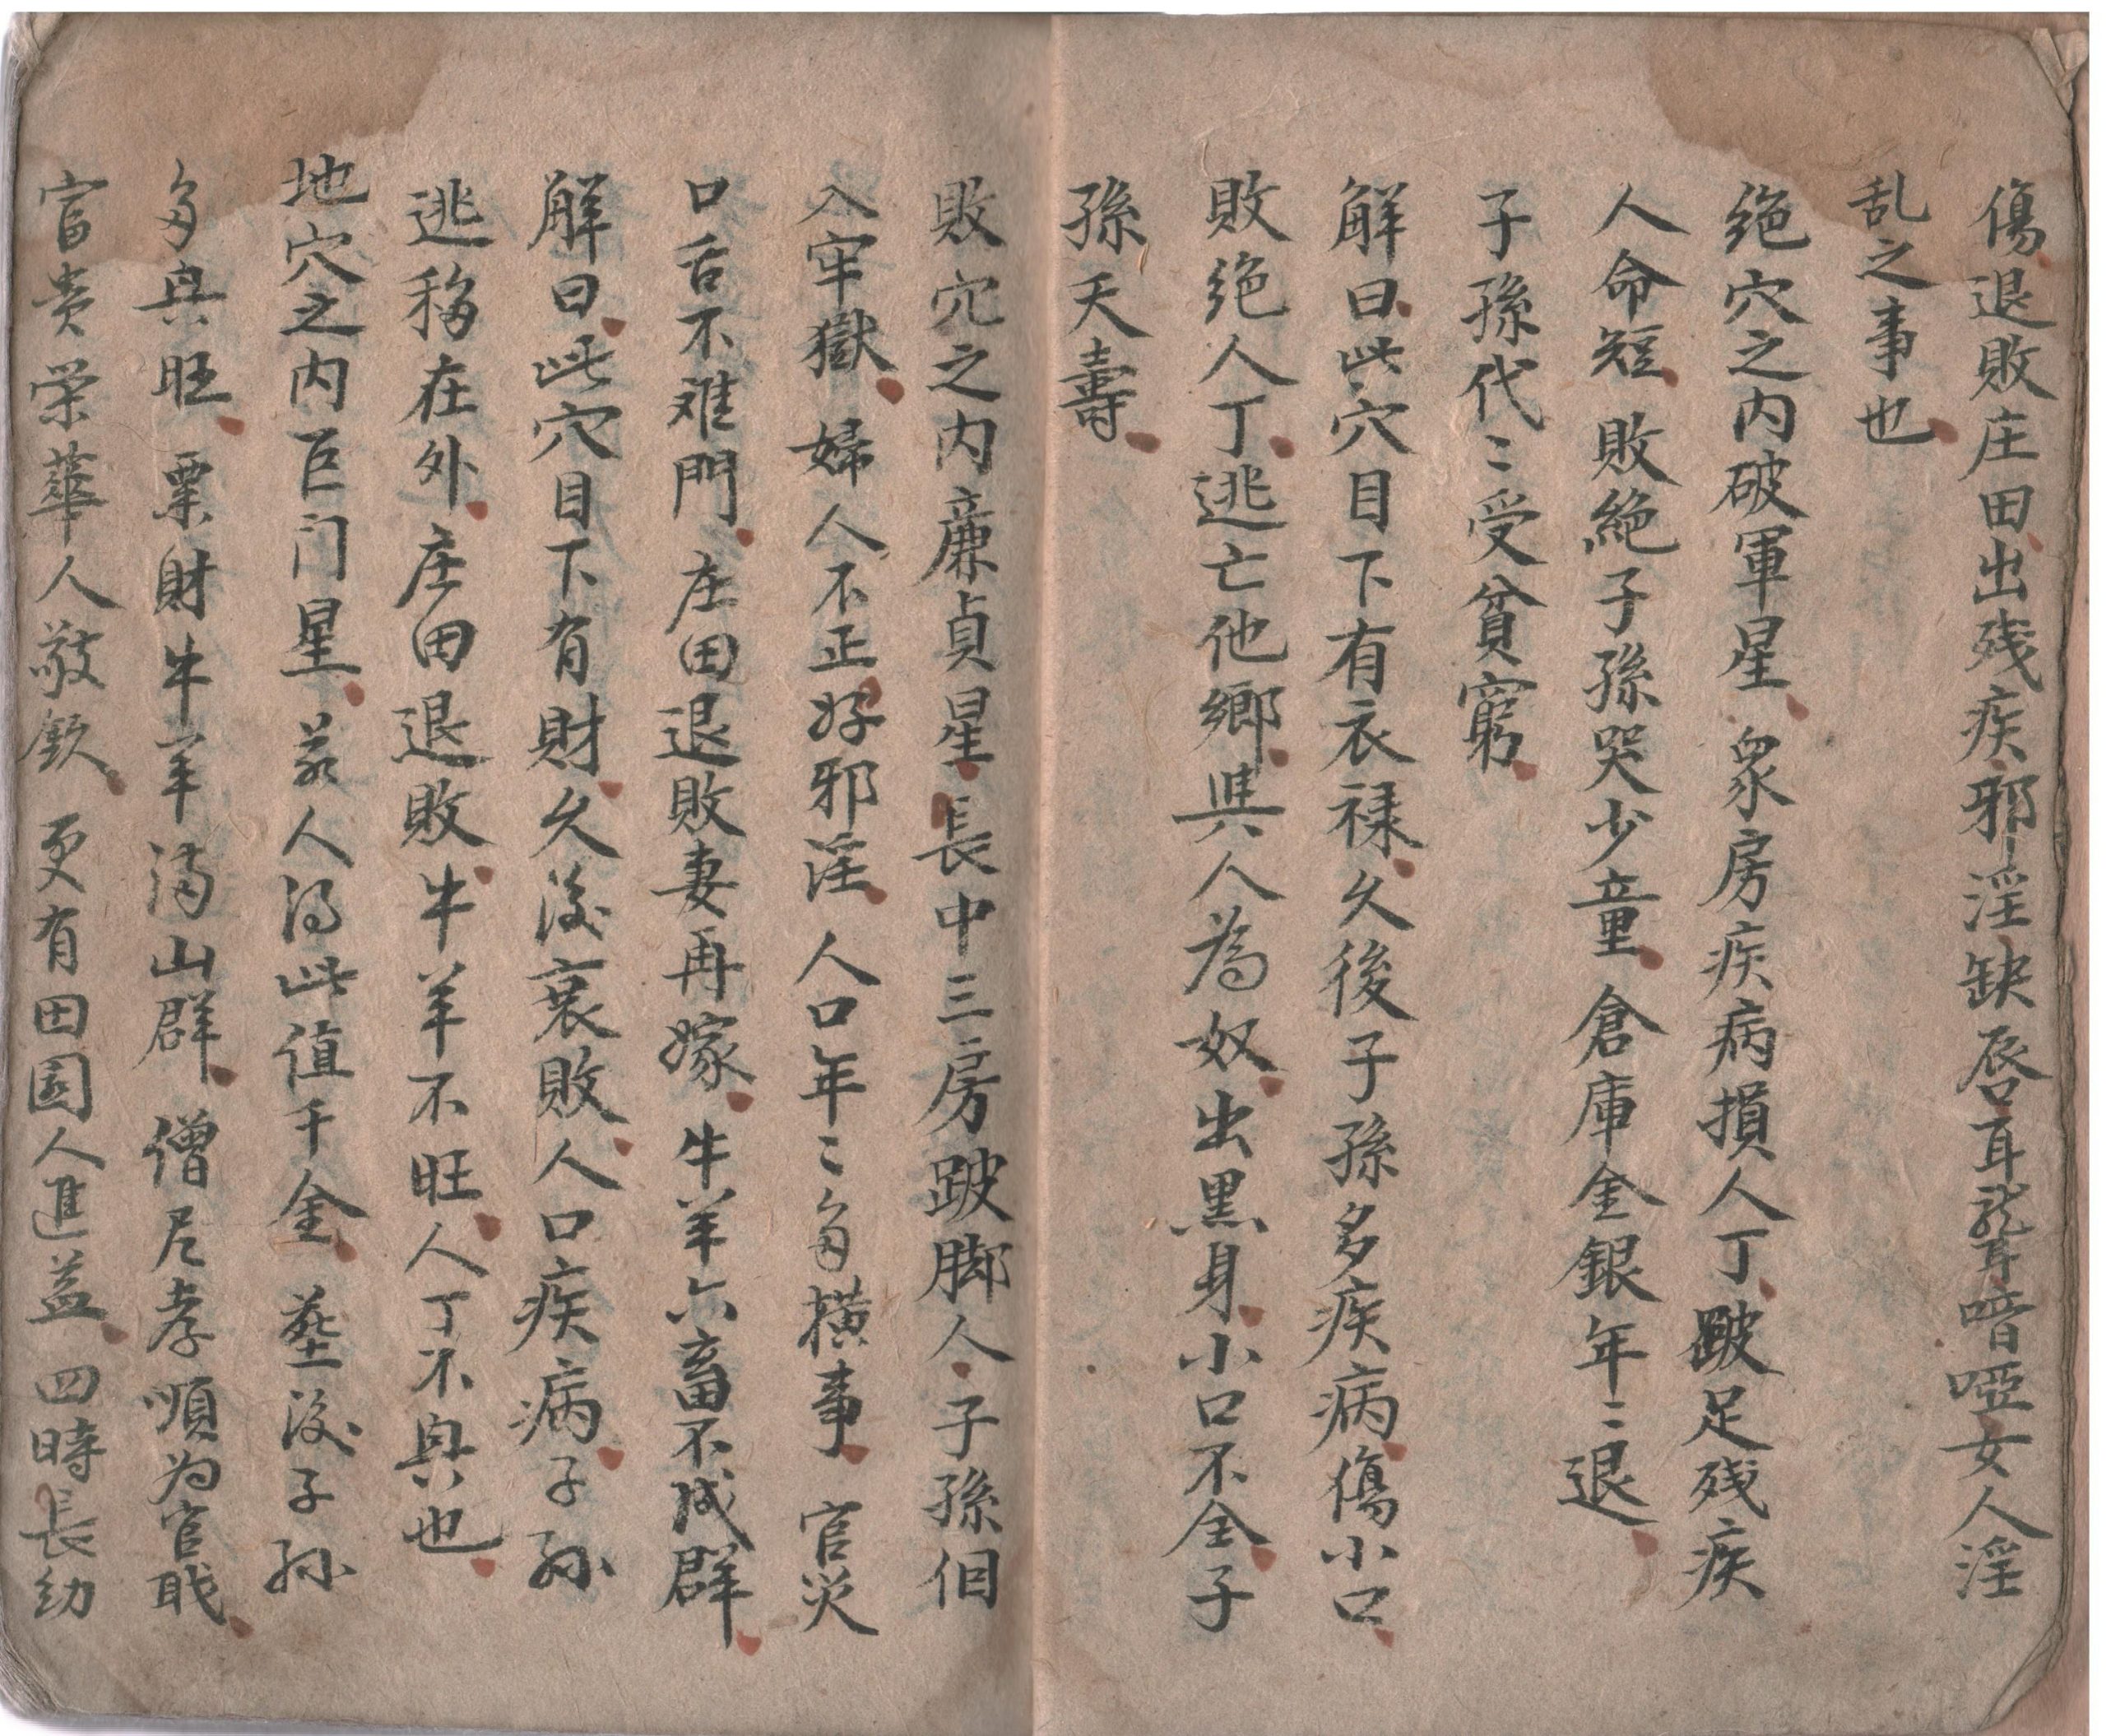 傷退敗庄田出残疾邪淫缺唇耳聾喑啞女人淫
乱之事也
绝穴之内破軍星衆房疾病損人丁跛足残疾
人命短敗絕子孫哭少童倉庫金銀年〻退
子孫代〻受貧窮
解曰此穴目下有衣禄久後子孫多疾病傷小口
敗绝人丁逃亡他鄉與人為奴出黑身小口不全子
孫夭壽
敗穴之内廉貞星長中三房跛脚人子孫徊
入牢獄婦人不正好邪淫人口年〻多横事官災
口舌不难門庄田退敗妻再嫁牛羊六畜不成群
解曰此穴目下有財久後衰敗人口疾病子孙
逃移在外庄田退敗牛羊不旺人丁不興也
地穴之内巨门星若人得此值千金塟後子孙
多興旺票財牛羊满山群僧尼孝順为官职
富贵荣華人敬欽更有田園人進益四時長幼